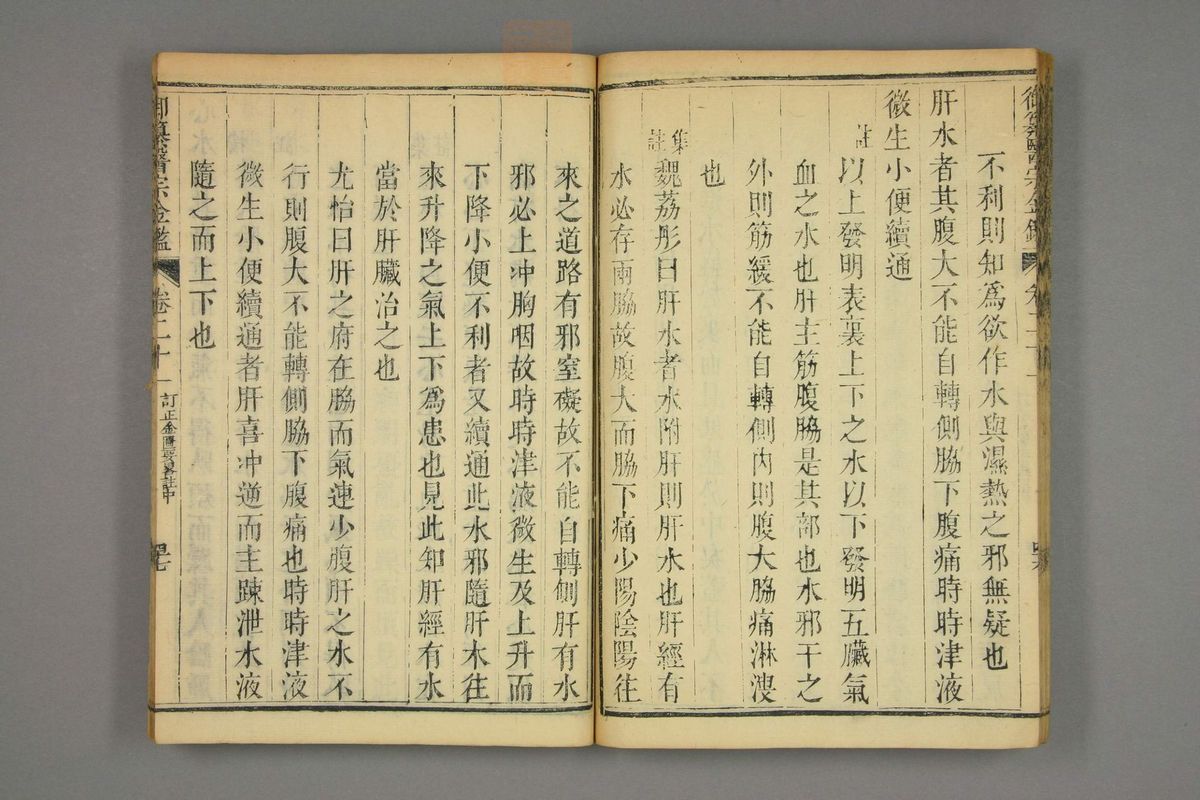 不利則知爲欲作水與濕熱之邪無疑也
肝水者其腹大不能自轉側脇下腹痛時時津液
微生小便續通
註以上發明表裏上下之水以下發明五臟氣
血之水也肝主筋腹脇是其部也水邪干之
外則筋緩不能自轉側內則腹大脇痛淋溲
也
集註魏荔彤曰肝水者水附肝則肝水也肝經有
水必存兩脇故腹大而脇下痛少陽陰陽往
來之道路有邪窒礙故不能自轉側肝有水
邪必上冲胸咽故時時津液微生及上升而
下降小便不利者又續通此水邪隨肝木往
來升降之氣上下爲患也見此知肝經有水
當於肝臟治之也
尤怡曰肝之府在脇而氣連少腹肝之水不
行則腹大不能轉側脇下腹痛也時時津液
微生小便續通者肝喜冲逆而主踈泄水液
隨之而上下也
御纂醫宗金鑑 卷二十一 訂正金匱要畧註中